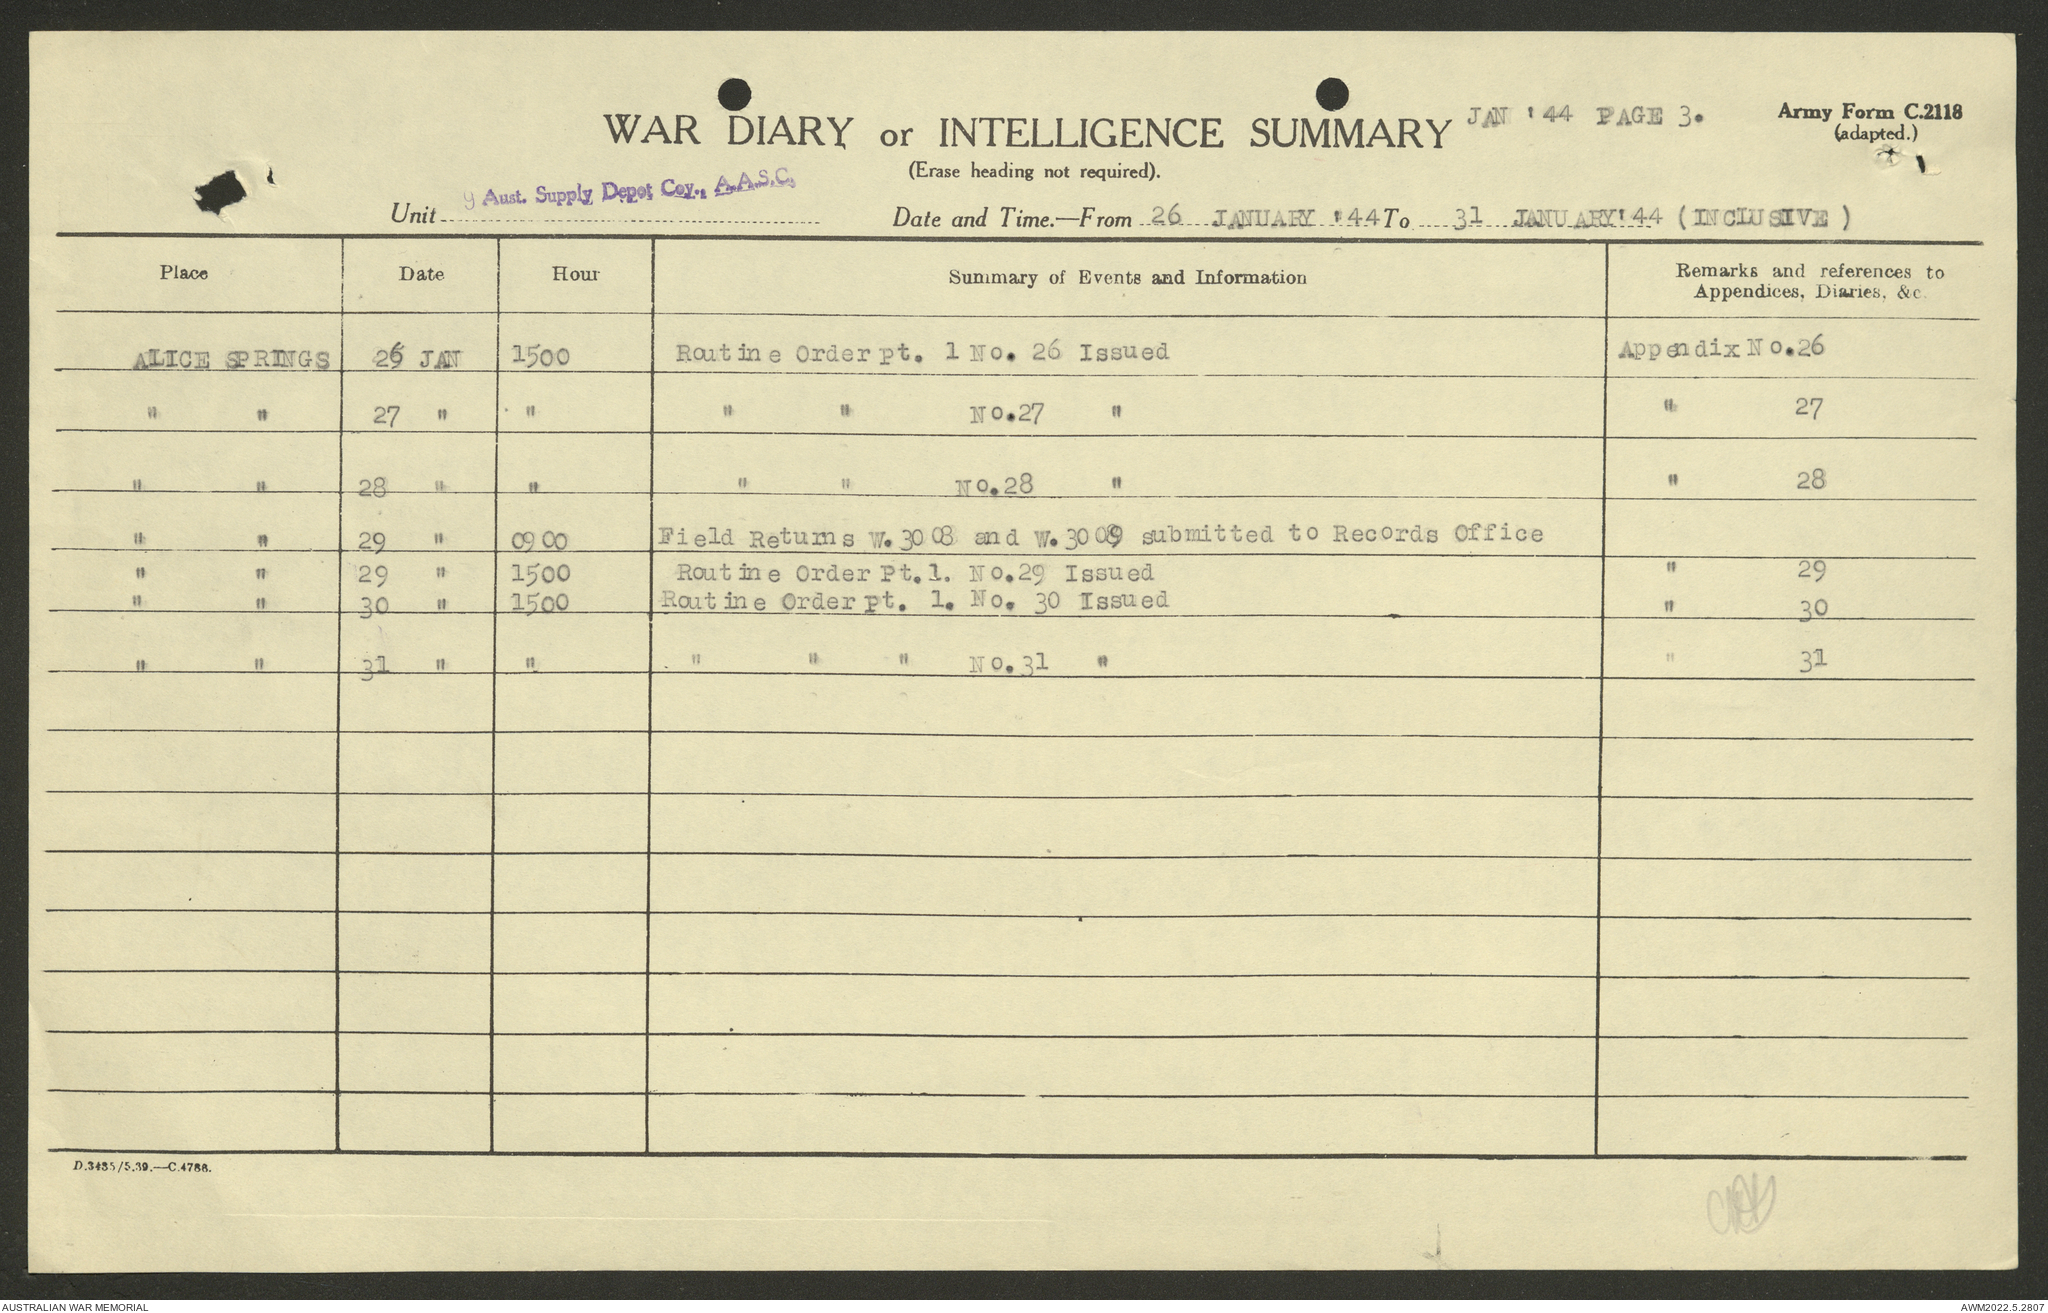 JAN '44 PAGE 3.
Army Form C.2118
(adapted.)
WAR DIARY or INTELLIGENCE SUMMARY
(Erase heading not required).
Unit 9 Aust. Supply Depot Coy., A.A.S.C. Date and Time.—From 26 JANUARY '44 To 31 JANUARY '44 (INCLUSIVE)
Place Date Hour Summary of Events and Information Remarks and references to Appendices, Diaries, &c.
ALICE SPRINGS 26 JAN 1500 Routine Order pt. 1 No. 26 Issued Appendix No.26
" " 27 " " " " No.27 " " 27
" " 28 " " " " No.28 " " 28
" " 29 " 0900 Field Returns W.3008 and W.3009 submitted to Records Office
" " 29 " 1500 Routine Order Pt.1. No.29 Issued " 29
" " 30 " 1500 Routine Order pt. 1. No. 30 Issued " 30
" " 31 " " " " " No.31 " " 31
D.3435/5.39.—C.4786.
AUSTRALIAN WAR MEMORIAL
AWM2022.5.2807